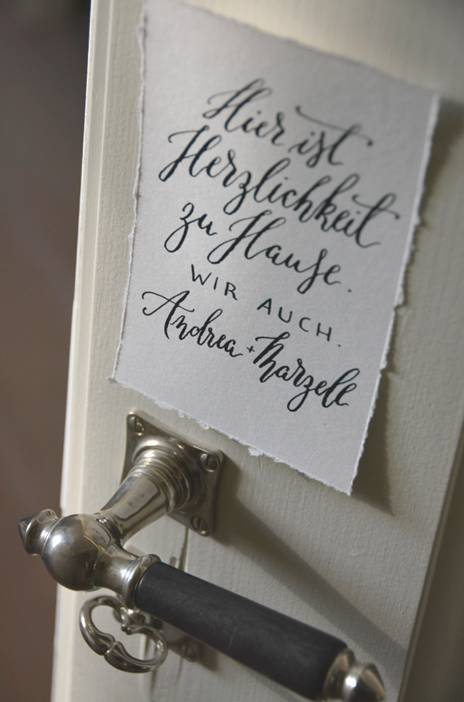 Hier ist
Herzlichkeit
zu Hause.
WIR AUCH.
Andrea + Marzell